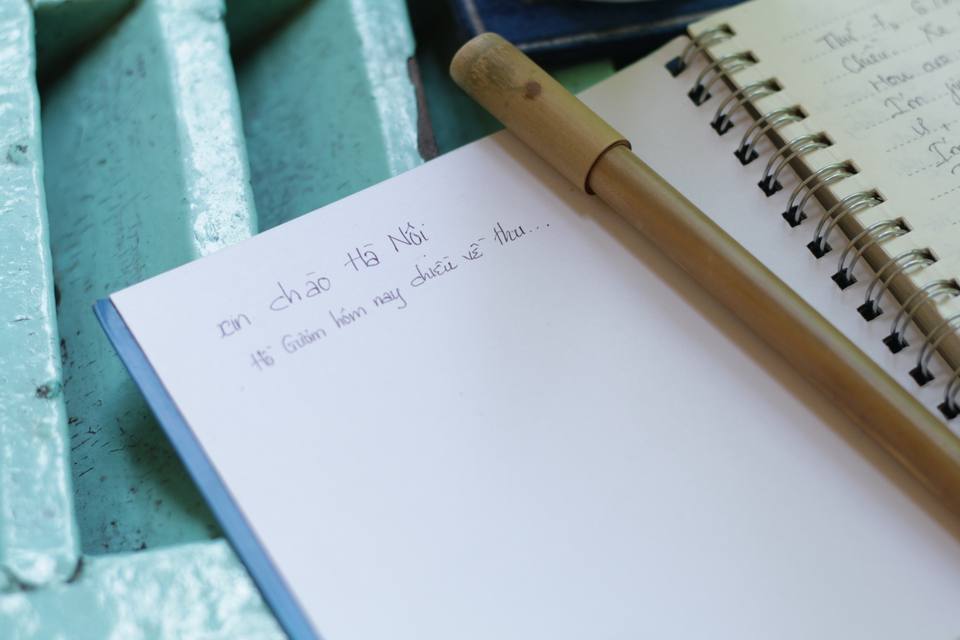 xin chào Hà Nội
Hồ Gươm hôm nay chiều về thu...
Thứ
Chiều
How are
I'm
I'm